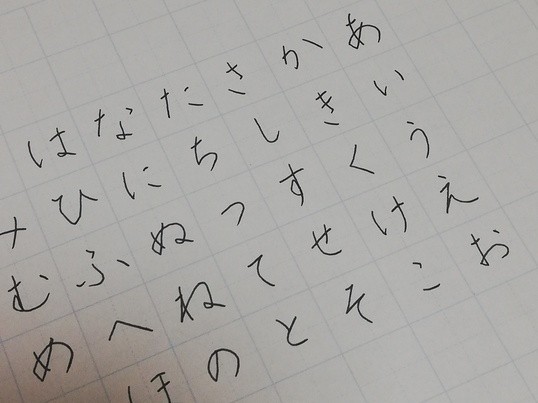 あいうえお
かきくけこ
さしすせそ
たちつてと
なにぬねの
はひふへほ
むめ